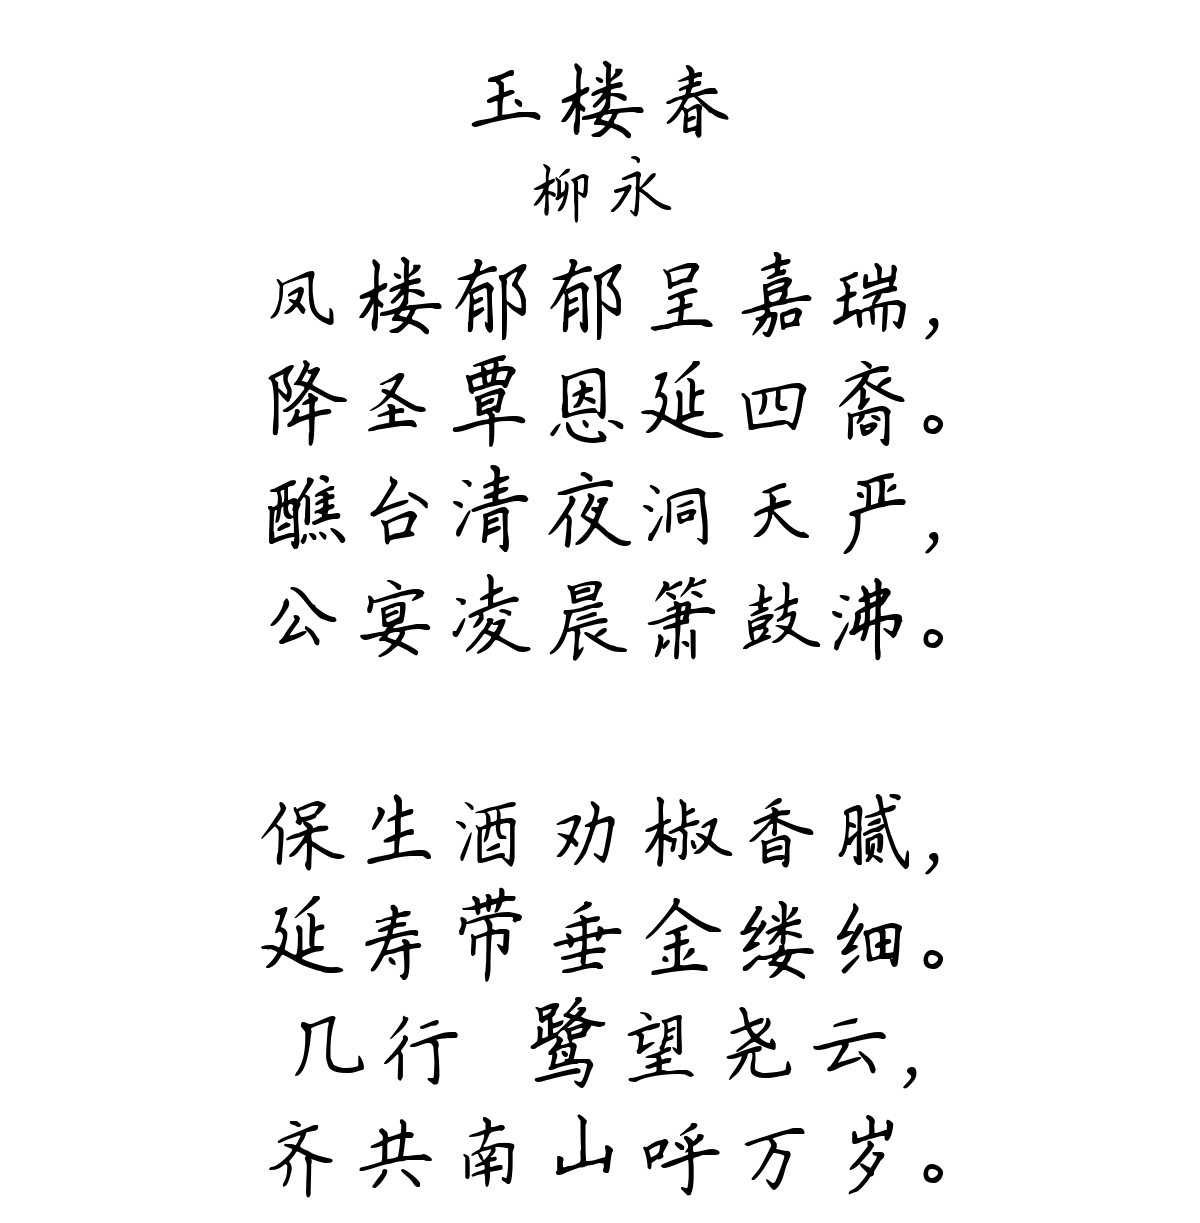 玉楼春
柳永
凤楼郁郁呈嘉瑞，
降圣覃恩延四裔。
醮台清夜洞天严，
公宴凌晨箫鼓沸。
保生酒劝椒香腻，
延寿带垂金缕细。
几行 鹭望尧云，
齐共南山呼万岁。